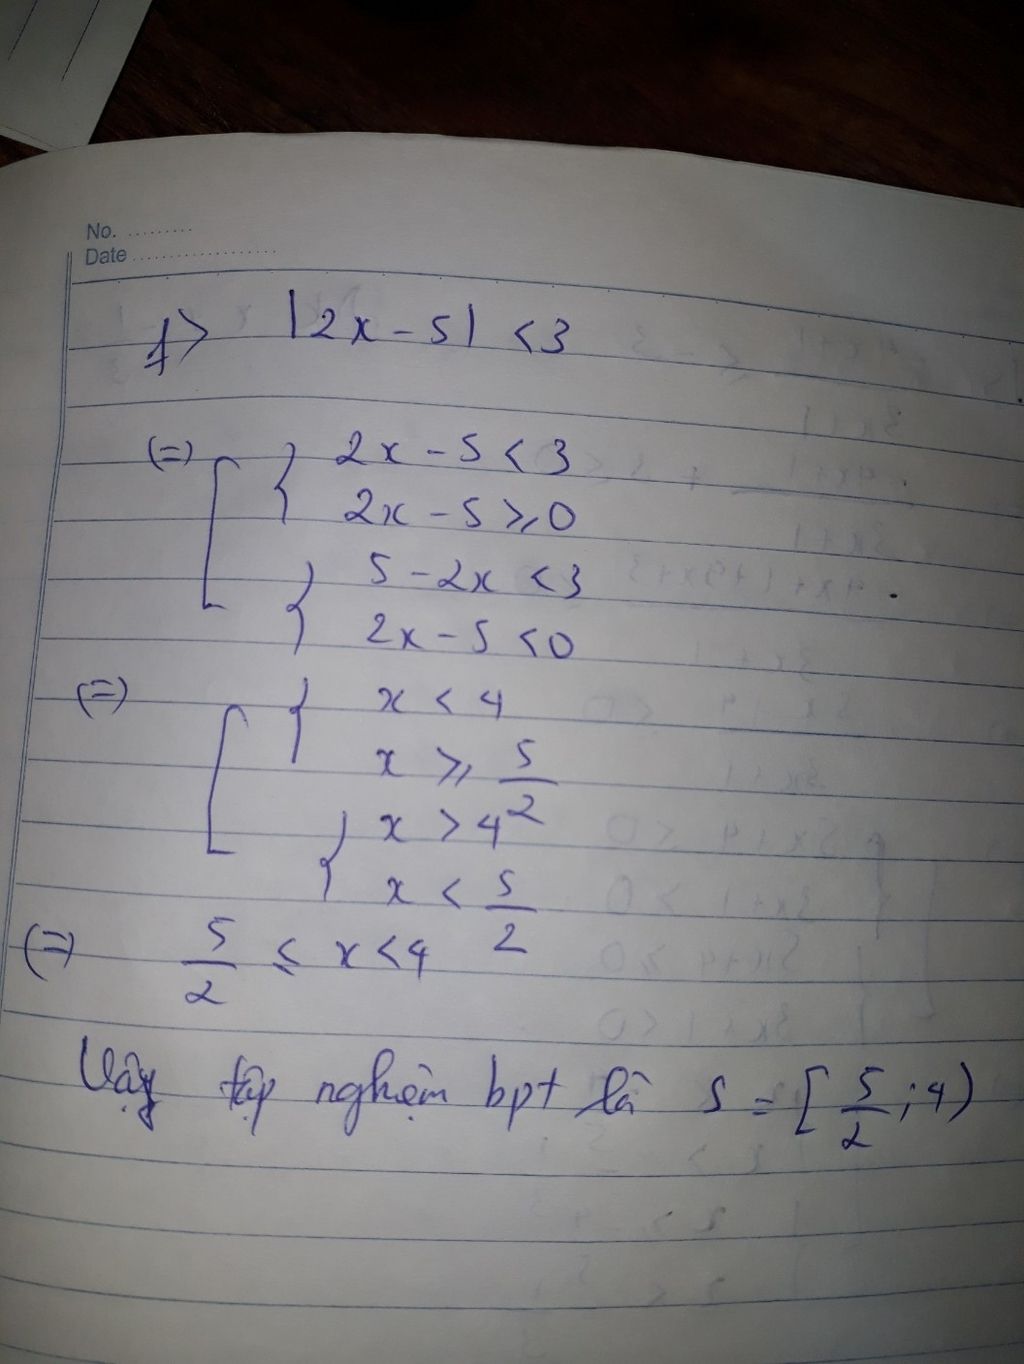 No. ..........
Date ......................
f> |2x - 5| < 3
(=) [ { 2x - 5 < 3
2x - 5 ≥ 0
{ 5 - 2x < 3
2x - 5 < 0
(=) [ { x < 4
x ≥ 5/2
{ x > 4
x < 5/2
(=) 5/2 ≤ x < 4
Vậy tập nghiệm bpt là S = [5/2 ; 4)